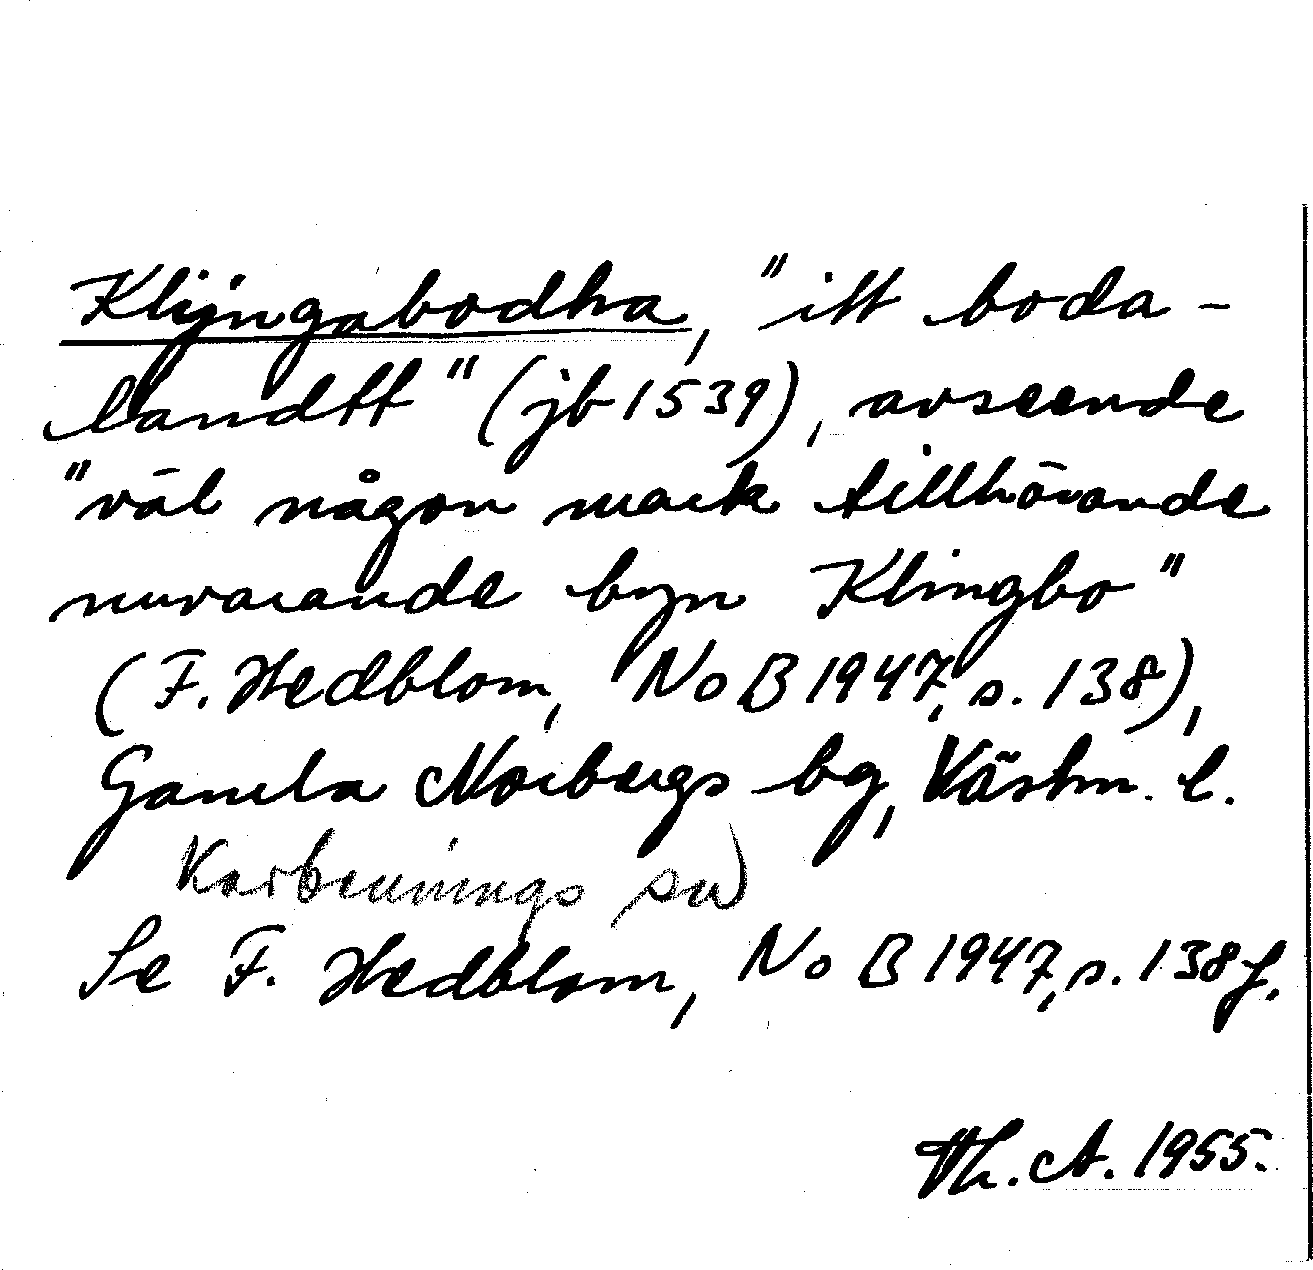 Klijngabodha, "itt boda-
landtt" (jb 1539), avseende
"väl någon mark tillhörande
nuvarande byn Klingbo"
(F. Hedblom, NoB 1947, s. 138),
Gamla Norbergs bg, Västm. l.
Karbennings sn
Se F. Hedblom, NoB 1947, s. 138 f.
Th. A. 1955.